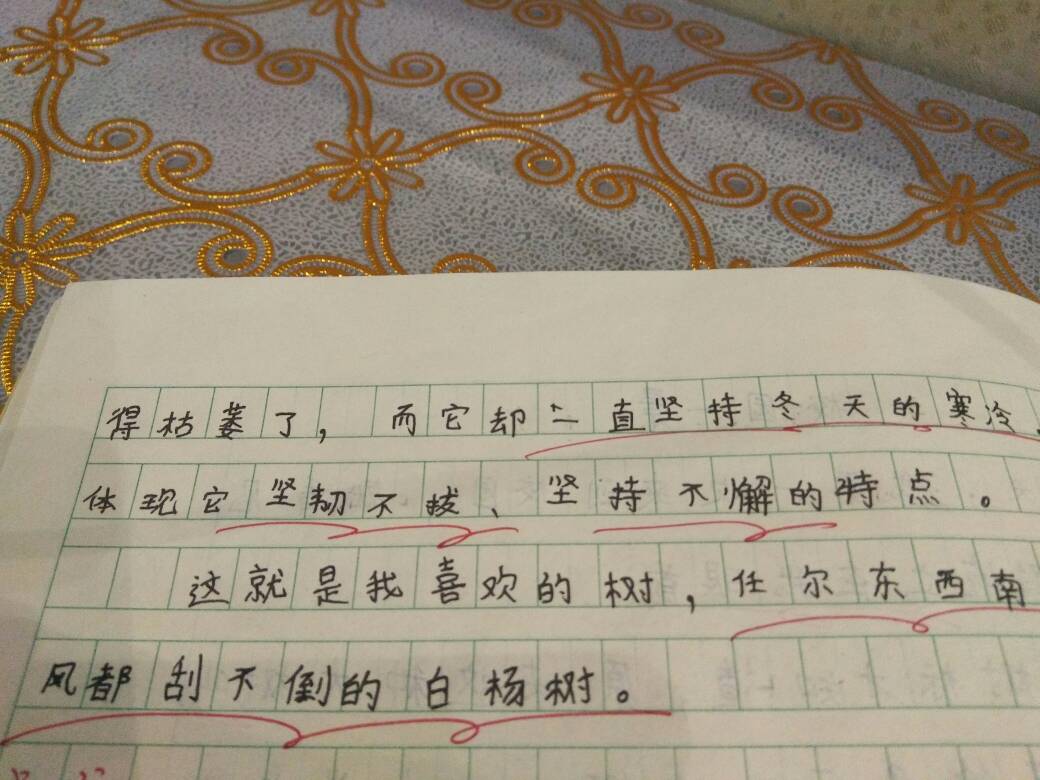 得枯萎了，而它却一直坚持冬天的寒冷，
体现它坚韧不拔、坚持不懈的特点。
这就是我喜欢的树，任尔东西南
风都刮不倒的白杨树。